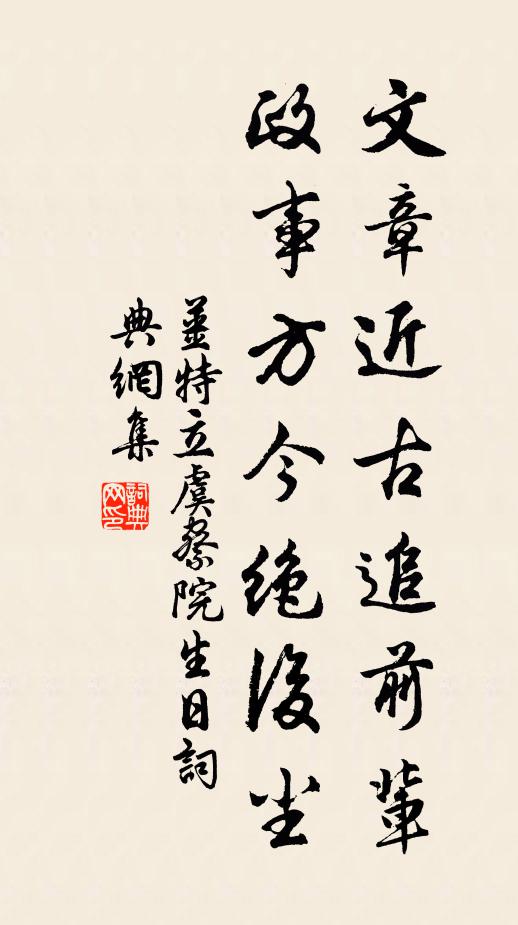 文章近古追前輩
政事方今絶後尘
薑特立虞察院生日詞
典網集
詞典
网印